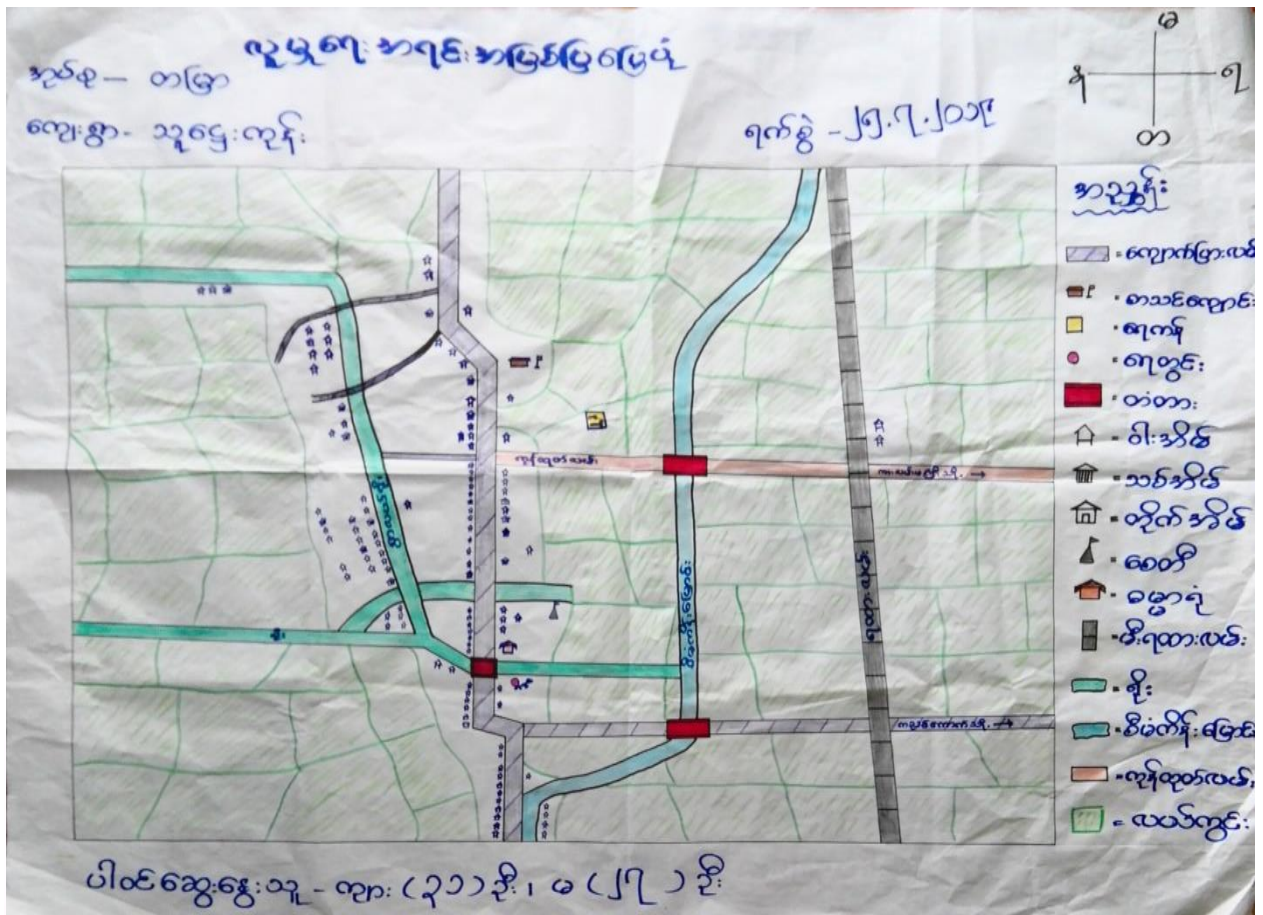 လူမှုရေးအရင်းအမြစ်ပြမြေပုံ
အုပ်စု - တမြာ
ကျေးရွာ - သူဌေးကုန်း
ရက်စွဲ - ၂၅.၇.၂၀၁၉
မ
န
ရ
တ
အညွှန်း
= ကျောက်ပြားလမ်း
= စာသင်ကျောင်း
= ရေကန်
= ရေတွင်း
= တံတား
= ဝါးအိမ်
= သစ်အိမ်
= တိုက်အိမ်
= စေတီ
= ဓမ္မာရုံ
= မီးရထားလမ်း
= ရိုး
= စီမံကိန်းမြောင်း
= ကုန်ထုတ်လမ်း
= လယ်ကွင်း
ကုန်ထုတ်လမ်း
ရိုး
စီမံကိန်းမြောင်း
မီးရထားလမ်း
ပါဝင်ဆွေးနွေးသူ - ကျား (၃၁) ဦး၊ မ (၂၇) ဦး